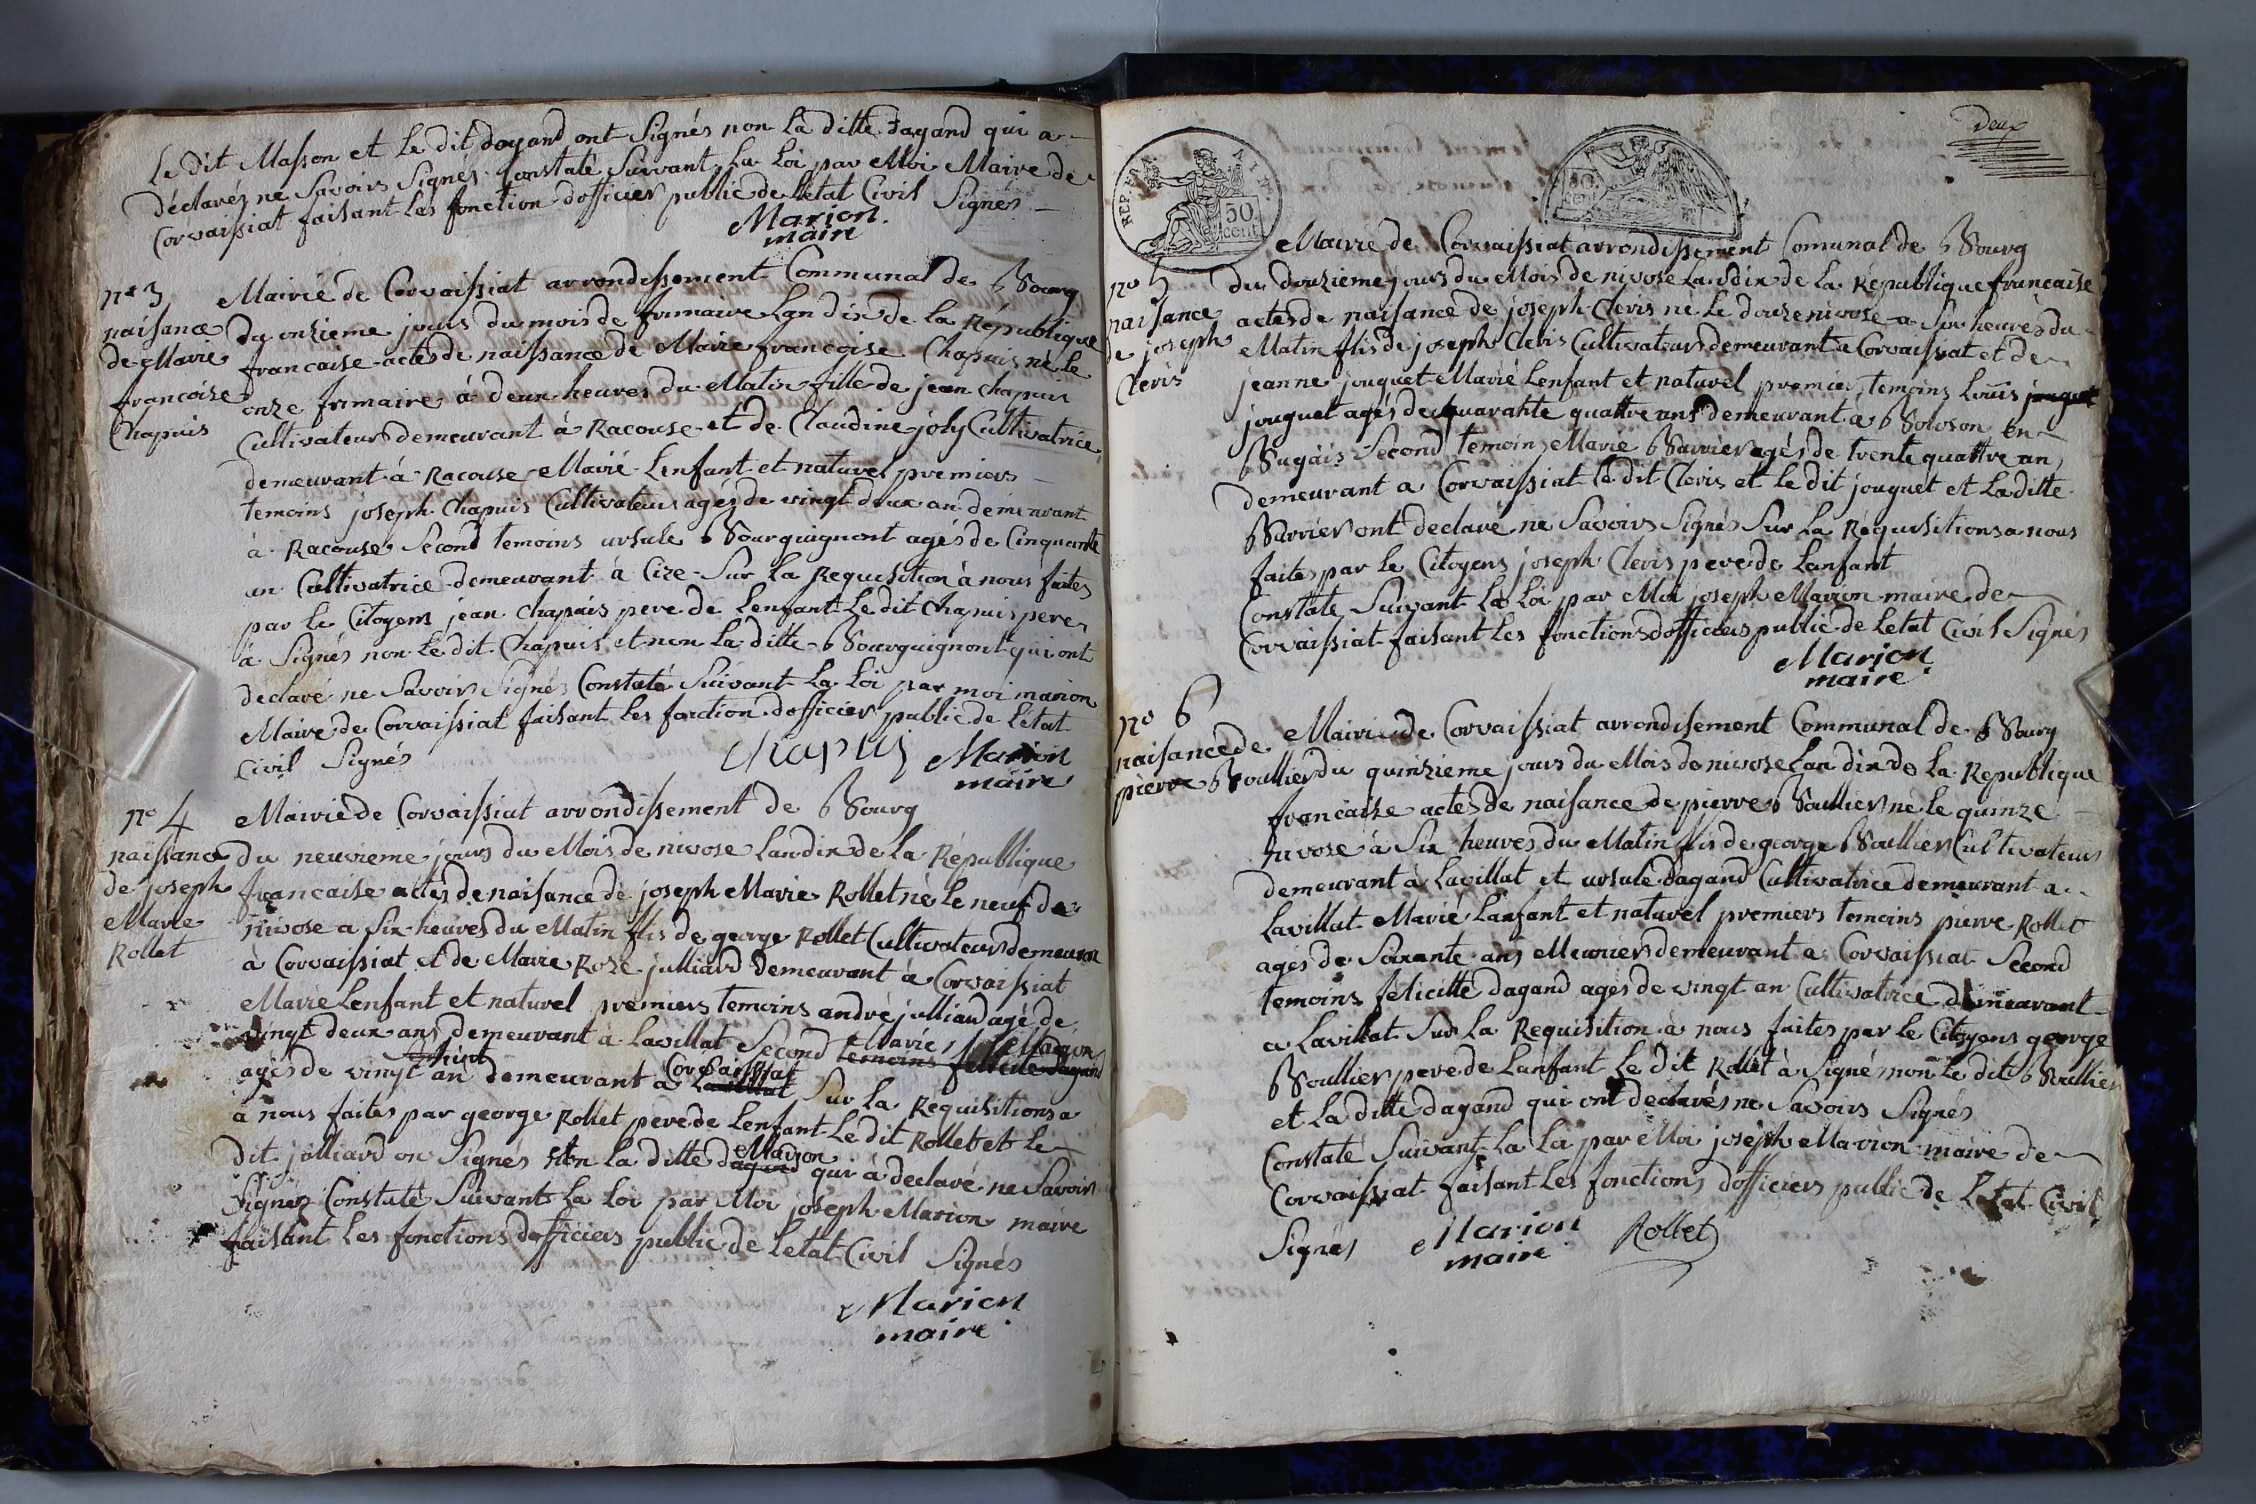 Le dit Masson et le dit doyand ont Signés non la ditte dagand qui a
déclarés ne Savoirs Signés Constaté Suivant La Loi par Moi Maire de
Corvaissiat faisant Les fonction dofficier public de Letat Civil Signés
Marion
maire
nº 3
naisance
de Marie
francoise
Chapuis
Mairie de Corvaissiat arrondissement Communal de Bourg
du onzieme jours du mois de frimaire Lan dix de la République
francaise actes de naissance de Marie francoise Chapuis né le
onze frimaire à deux heures du Matin fille de jean chapuis
Cultivateurs demeurant à Racouse et de Claudine joly Cultivatrice
demeurant à Racouse Marié Lenfant et naturel premiers
temoins joseph Chapuis Cultivateur agés de vingt deux an demeurant
à Racouse Second temoins ursule Bourguignont agés de Cinquante
un Cultivatrice demeurant à Cize Sur La Requisition à nous faites
par le Citoyens jean Chapuis pere de Lenfant Le dit Chapuis pere
à Signés non Le dit Chapuis et non La ditte Bourguignont qui ont
declaré ne Savoirs Signés Constaté Suivant La Loi par moi marion
Maire de Corvaissiat faisant Les fonction dofficier public de Létat
Civil Signés
Chapuis Marion
maire
nº 4
naissance
de joseph
Marie
Rollet
Mairie de Corvaissiat arrondissement de Bourg
du neuvieme jours du Mois de nivose Landix de la République
francaise actes de naisance de joseph Marie Rollet né Le neuf de
nivose a Six heures du Matin fils de george Rollet Cultivateurs demeurant
à Corvaissiat et de Marie Roze julliard demeurant à Corvaissiat
Marie Lenfant et naturel premiers temoins andré julliard agé de
vingt deux ans demeurant à Lavillat Second temoins felicite dagand
agés de vingt an demeurant à Corvaissiat Lavillat Sur La Requisitions a
à nous faites par george Rollet pere de Lenfant Le dit Rollet et le
dit julliard on Signés non la ditte dagand Marion qui à declaré ne Savoirs
Signés Constaté Suivant La Loi par Moi joseph Marion maire
faisant Les fonctions dofficiers public de Letat Civil Signés
Marion
maire
Deux
REP. FRA.
AIN.
50
cent
Mairie de Corvaissiat arrondissement Comunal de Bourg
nº 5
naisance
de joseph
Clevis
du douzieme jours du Mois de nivose Landix de La République francaise
actes de naisance de joseph Clevis né Le douze nivose a Six heures du
Matin fils de joseph Clevis Cultivateurs demeurant a Corvaissiat et de
jeanne jouguet Marié Lenfant et naturel premier temoins Louis jouguet
jouguet agés de quarante quattre ans demeurant a Boloson En
Bugais Second temoin Marie Barrier agés de trente quattre an
demeurant a Corvaissiat le dit Clevis et le dit jouguet et La ditte
Barrier ont declaré ne Savoirs Signés Sur La Requisitions a nous
faites par le Citoyens joseph Clevis pere de Lenfant
Constaté Suivant La Loi par Moi joseph Marion maire de
Corvaissiat faisant Les fonctions dofficiers public de Letat Civil Signés
Marion
maire
nº 6
naisance de
pierre Boullier
Mairie de Corvaissiat arrondisement Communal de Bourg
du quinzieme jours du Mois de nivose Lan dix de La Republique
francaise actes de naisance de pierre Boullier né le quinze
nivose à Six heures du Matin fils de george Boullier Cultivateurs
demeurant à Lavillat et ursule dagand Cultivatrice demeurant a
Lavillat Marié Lanfant et naturel premiers temoins pierre Rollet
agés de Soixante ans Meunier demeurant a Corvaissiat Second
temoins félicitté dagand agés de vingt an Cultivatrice demeurant
a Lavillat Sur La Requisition à nous faites par le Citoyens george
Boullier pere de Lanfant Le dit Rollet à Signé non Le dit Boullier
et La ditte dagand qui ont declarés ne Savoirs Signés
Constaté Suivant La Loi par Moi joseph Marion maire de
Corvaissiat faisant Les fonctions dofficiers public de Letat Civil
Signés Marion Rollet
maire